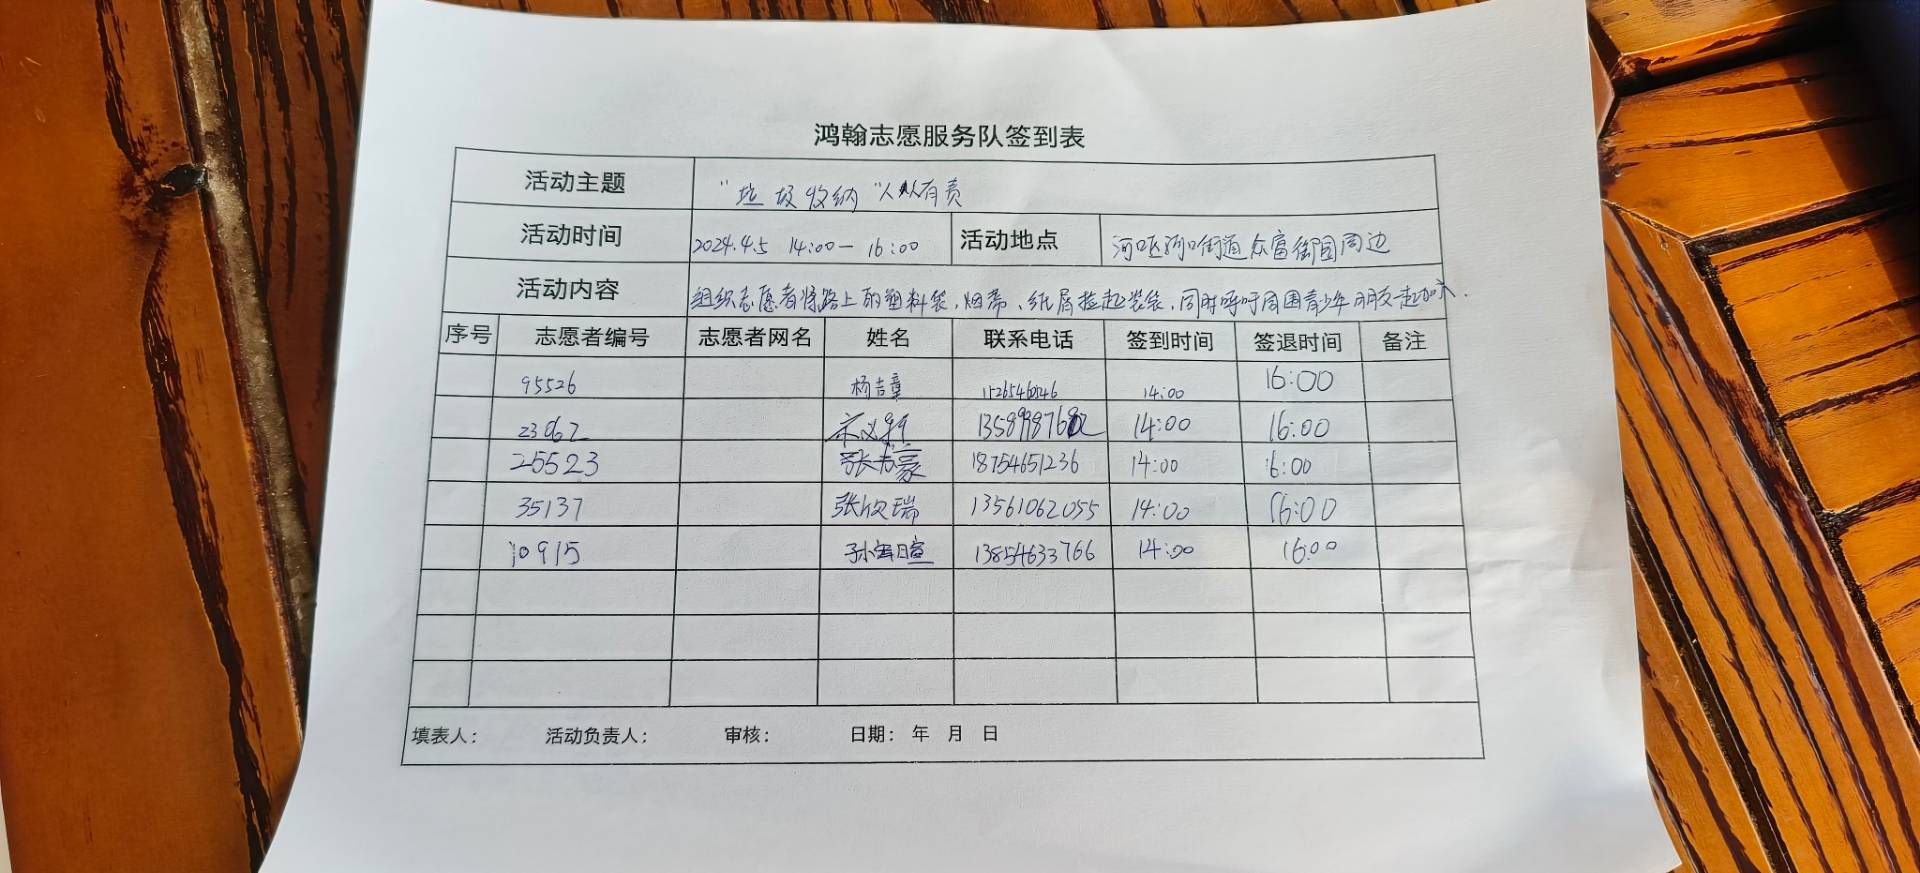 鸿翰志愿服务队签到表
活动主题 "垃圾收纳"人人有责
活动时间 2024.4.5 14:00—16:00 活动地点 河口区河口街道众富街园周边
活动内容 组织志愿者将路上的塑料袋、烟蒂、纸屑捡起装袋,同时呼吁周围青少年朋友一起加入.
序号 志愿者编号 志愿者网名 姓名 联系电话 签到时间 签退时间 备注
95526 杨吉章 14:00 16:00
23962 14:00 16:00
25523 张书豪 18754651236 14:00 16:00
35137 张欣瑞 13561062055 14:00 16:00
10915 13854633766 14:00 16:00
填表人: 活动负责人: 审核: 日期: 年 月 日